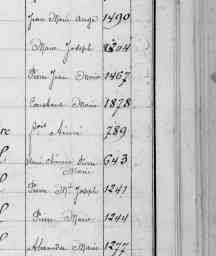 Jean Marie Ange 1490
Marie Joseph 1304
Pierre Jean Marie 1467
Constant Marie 1878
fois Aimé 789
René Pierre 643
Marie
Pierre Mie Joseph 1241
Pierre Marie 1244
Alexandre Marie 1277